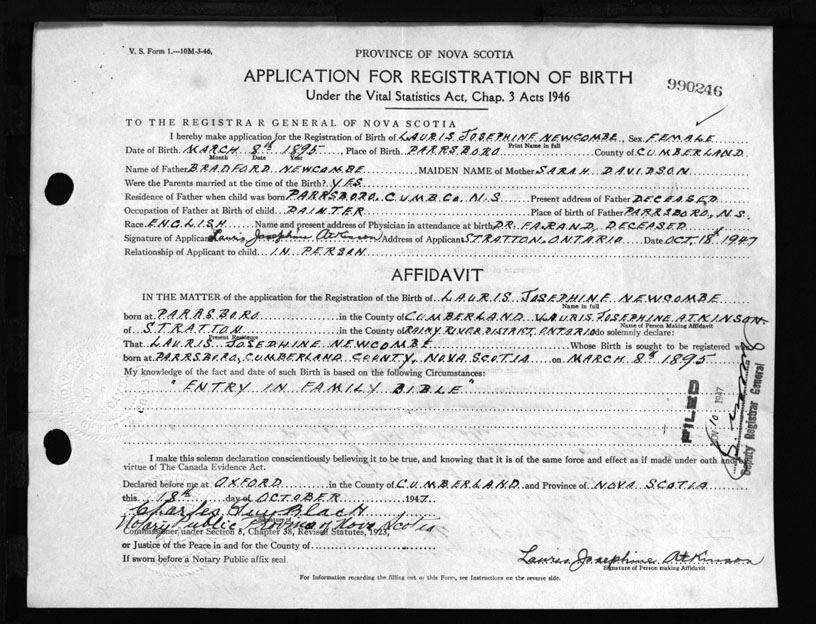 V. S. Form 1.—10M-3-46,
PROVINCE OF NOVA SCOTIA
APPLICATION FOR REGISTRATION OF BIRTH
990246
Under the Vital Statistics Act, Chap. 3 Acts 1946
TO THE REGISTRAR GENERAL OF NOVA SCOTIA
I hereby make application for the Registration of Birth of LAURIS JOSEPHINE NEWCOMBE, Sex FEMALE
Print Name in full
Date of Birth MARCH 8th 1895 Place of Birth PARRSBORO County of CUMBERLAND
Month Date Year
Name of Father BRADFORD NEWCOMBE MAIDEN NAME of Mother SARAH DAVIDSON
Were the Parents married at the time of the Birth? YES
Residence of Father when child was born PARRSBORO, CUMB. CO. N.S Present address of Father DECEASED
Occupation of Father at Birth of child PAINTER Place of birth of Father PARRSBORO, N.S.
Race ENGLISH Name and present address of Physician in attendance at birth DR. FARAND, DECEASED
Signature of Applicant Lauris Josephine Atkinson Address of Applicant STRATTON, ONTARIO Date OCT. 18th 1947
Relationship of Applicant to child IN PERSON
AFFIDAVIT
IN THE MATTER of the application for the Registration of the Birth of LAURIS JOSEPHINE NEWCOMBE
Name in full
born at PARRSBORO in the County of CUMBERLAND LAURIS JOSEPHINE ATKINSON
Name of Person Making Affidavit
of STRATTON in the County of RAINY RIVER DISTRICT, ONTARIO do solemnly declare:
Present Residence
That LAURIS JOSEPHINE NEWCOMBE Whose Birth is sought to be registered was
born at PARRSBORO, CUMBERLAND COUNTY, NOVA SCOTIA on MARCH 8th 1895
My knowledge of the fact and date of such Birth is based on the following Circumstances:
"ENTRY IN FAMILY BIBLE"
FILED
10 1947
Deputy Registrar General
I make this solemn declaration conscientiously believing it to be true, and knowing that it is of the same force and effect as if made under oath and
virtue of The Canada Evidence Act.
Declared before me at OXFORD in the County of CUMBERLAND and Province of NOVA SCOTIA
this 18th day of OCTOBER 1947
Charles Guy Black
Notary Public Province of Nova Scotia
Commissioner under Section 8, Chapter 38, Revised Statutes, 1923,
or Justice of the Peace in and for the County of
If sworn before a Notary Public affix seal.
Lauris Josephine Atkinson
Signature of Person making Affidavit
For Information regarding the filling out of this Form, see Instructions on the reverse side.